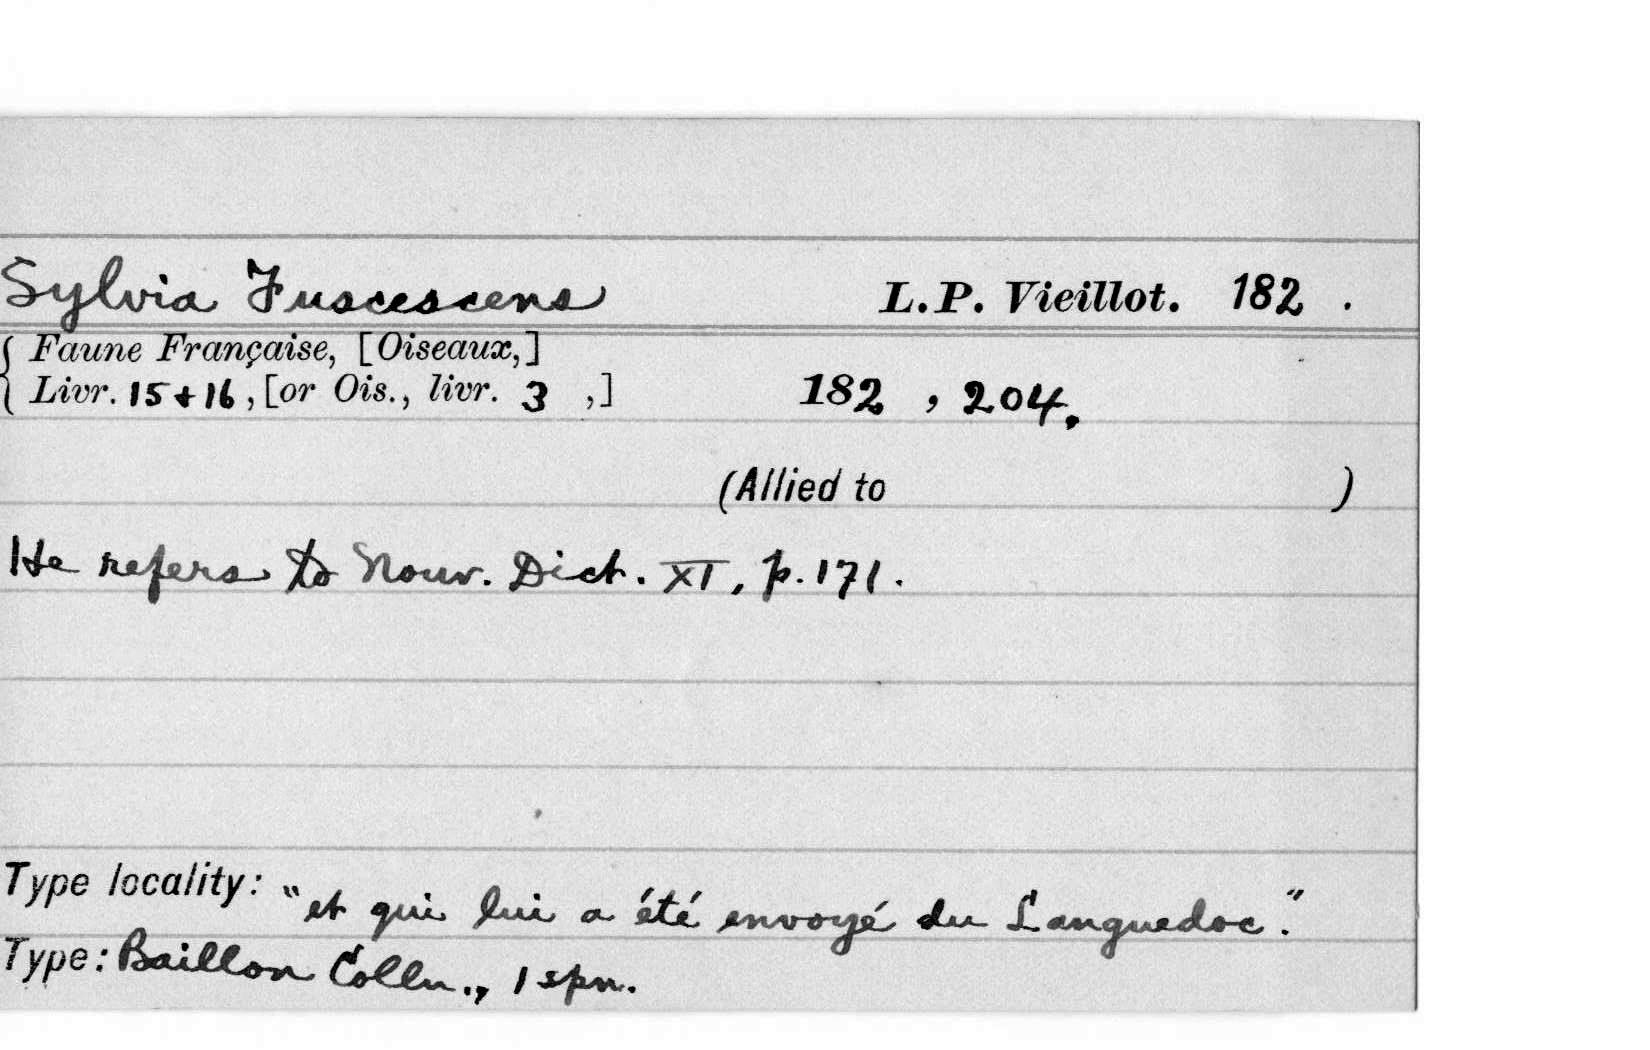 Sylvia Fuscescens L.P. Vieillot. 182 .
{ Faune Française, [Oiseaux,]
Livr. 15 + 16, [or Ois., livr. 3 ,] 182 , 204.
(Allied to )
He refers to Nouv. Dict. XI, p. 171.
Type locality: "et qui lui a été envoyé du Languedoc."
Type: Baillon Colln., 1 spn.